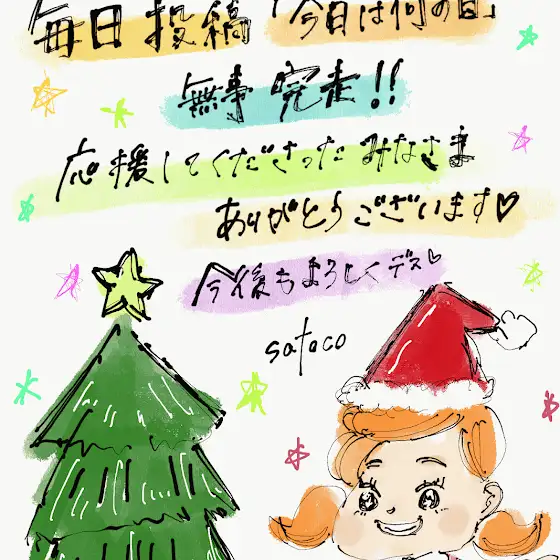 毎日投稿「今日は何の日」
無事完走!!
応援してくださった みなさま
ありがとうございます♡
今後もよろしくデス♡
satoco